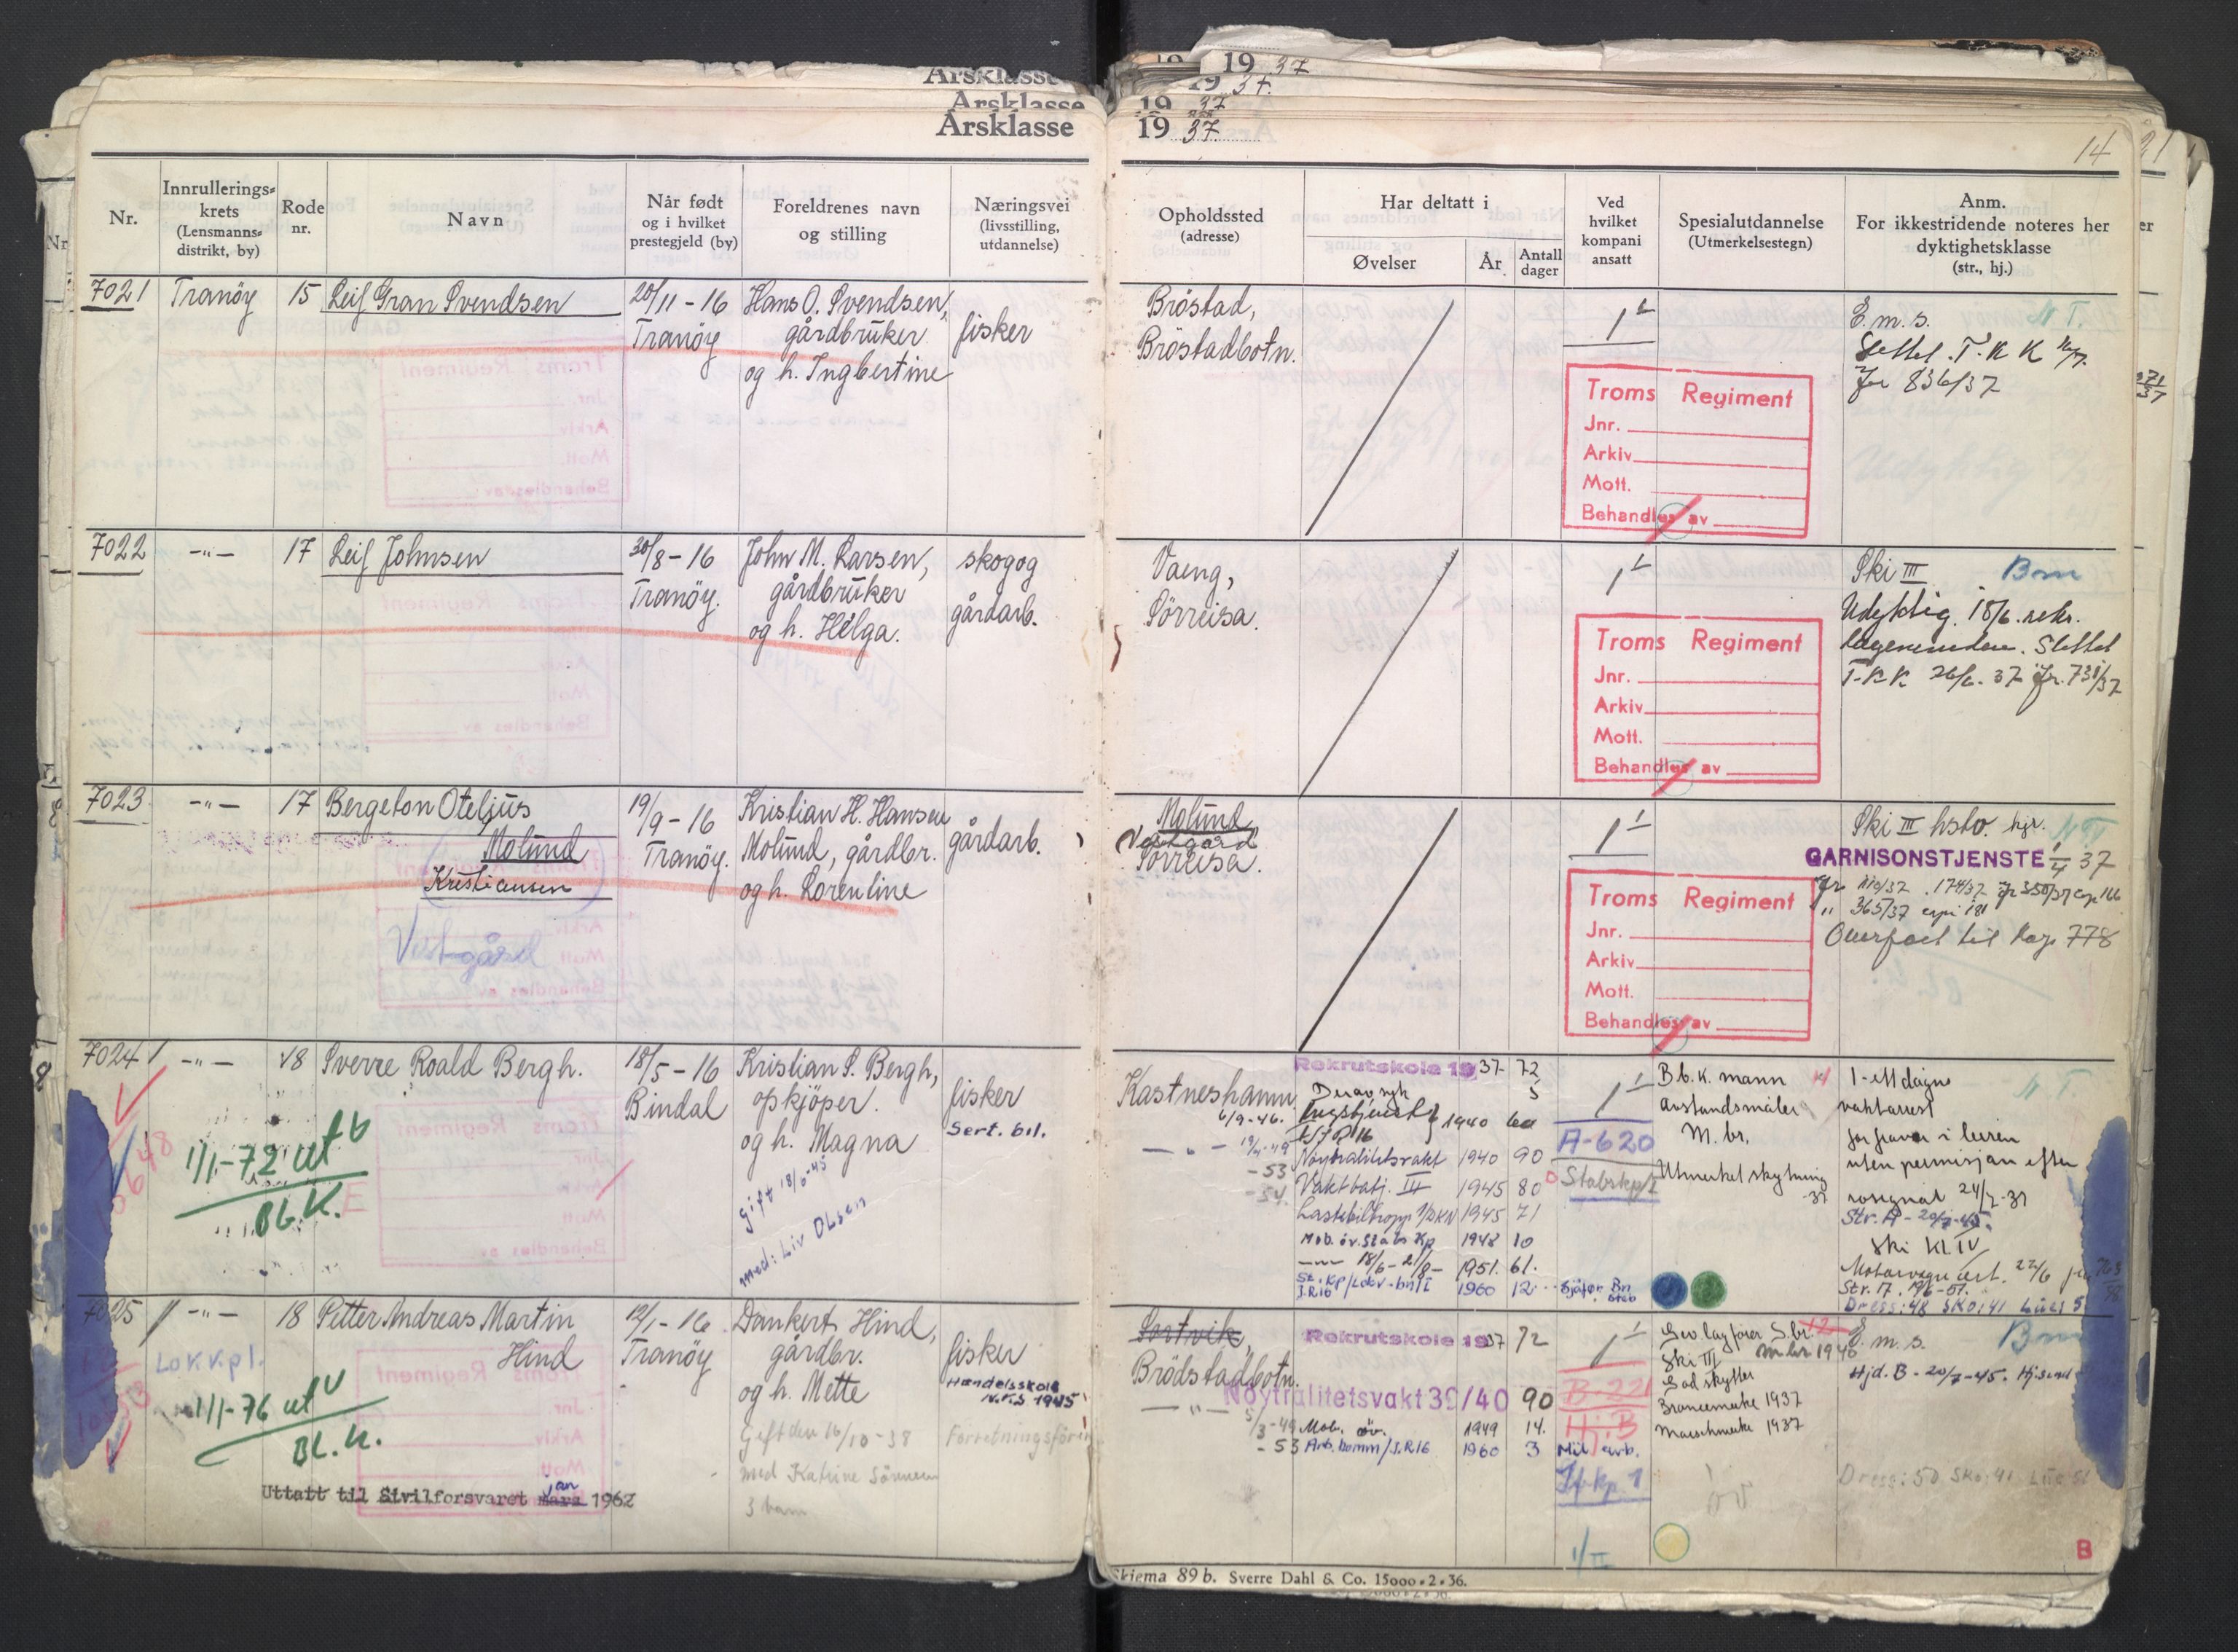 Årsklasse
Årsklasse
Årsklasse
19 37
19 37.
19 37
19 37.
14
21
Nr.
Innrullerings-
krets
(Lensmanns-
distrikt, by)
Rode
nr.
Navn
Når født
og i hvilket
prestegjeld (by)
Foreldrenes navn
og stilling
Næringsvei
(livsstilling,
utdannelse)
Opholdssted
(adresse)
Har deltatt i
Øvelser
År
Antall
dager
Ved
hvilket
kompani
ansatt
Spesialutdannelse
(Utmerkelsestegn)
Anm.
For ikkestridende noteres her
dyktighetsklasse
(str., hj.)
7021
Tranöy
15
Leif Gran Svendsen
20/11 - 16
Tranöy
Hans O. Svendsen,
gårdbruker
og h. Ingbertine
fisker
Bröstad,
Bröstadbotn.
Troms Regiment
Jnr.
Arkiv
Mott.
Behandles av
E. m. s.
Slettet T.K K
Jr 836/37
7022
-"-
17
Leif Johnsen
30/8 - 16
Tranöy.
John M. Larsen,
gårdbruker
og h. Helga.
skogog
gårdarb.
Vaeng,
Sörreisa.
Troms Regiment
Jnr.
Arkiv
Mott.
Behandles av
Ski III
Udyktig. 18/6. rekr.
Slettet
T.K.K. 26/6. 37 Jr. 731/37
7023
-"-
17
Bergeton Oteljus
Molund
Kristiansen
Vestgård
19/9 - 16
Tranöy.
Kristian H. Hansen
Molund, gårdbr.
og h. Lorentine
gårdarb.
Molund
Vestgård
Sörreisa.
Troms Regiment
Jnr.
Arkiv
Mott.
Behandles av
Ski III hsto. hjr.
GARNISONSTJENSTE 1/4 37
Overført til 778
7024
-"-
18
Sverre Roald Bergh.
1/1-72 ut
Bl.K.
18/5 - 16
Bindal
Kristian S. Bergh,
opkjöper.
og h. Magna
gift 18/6-45
med: Liv Olsen
fisker
Sert. bil.
Kastneshamn
6/9-46.
-53
-54.
Rekrutskole 1937 72
5
1940 60
I R 16
Nöytralitetsvakt 1940 90
Vaktbatj. III 1945 80
1945 71
Mob. öv. Stabs Kp 1948 10
18/6 - 2/8 - 1951. 61.
St. Kp/Lokv-bn/I
I.R16 1960 12
A-620
Stabskp/I
Sjåfør Bn
stab
B b. k. mann
Avstandsmåler
M. br.
Utmerket skytning
-37
1-ett døgns
vaktarrest
for fravær i leiren
uten permisjon efter
rosignal 24/7-37
Str. A - 20/7-45.
Ski Kl IV
Str. 17. 19/6-51.
Dress: 48 Sko: 41
7025
-"-
18
Petter Andreas Martin
Hind
Lok.v.pl.
1/1-76 ut
Bl.K.
Uttatt til Sivilforsvaret mars jan 1962
12/1 - 16
Tranöy
Dankert Hind,
gårdbr.
og h. Mette
Gift den 16/10-38
med Katrine Sörensen
3 barn
fisker
Handelsskole
N.F.S 1945
Forretningsförer
Sortvik,
Brödstadbotn.
-"-
5/3-49
-53
Rekrutskole 1937 72
Nöytralitetsvakt 39/40 90
Mob. öv. 1949 14.
Arb. komm/I.R16 1960 3
B-221
Hj. B
Mil arb.
1/II
Gev lagfører S.br.
Ski III M br 1940
God skytter
Bronsemerke 1937
Marschmerke 1937
E. m. s.
Hjd. B - 20/7-45.
Dress: 50 Sko: 41
B
Skjema 89 b. Sverre Dahl & Co. 15000.2.36.